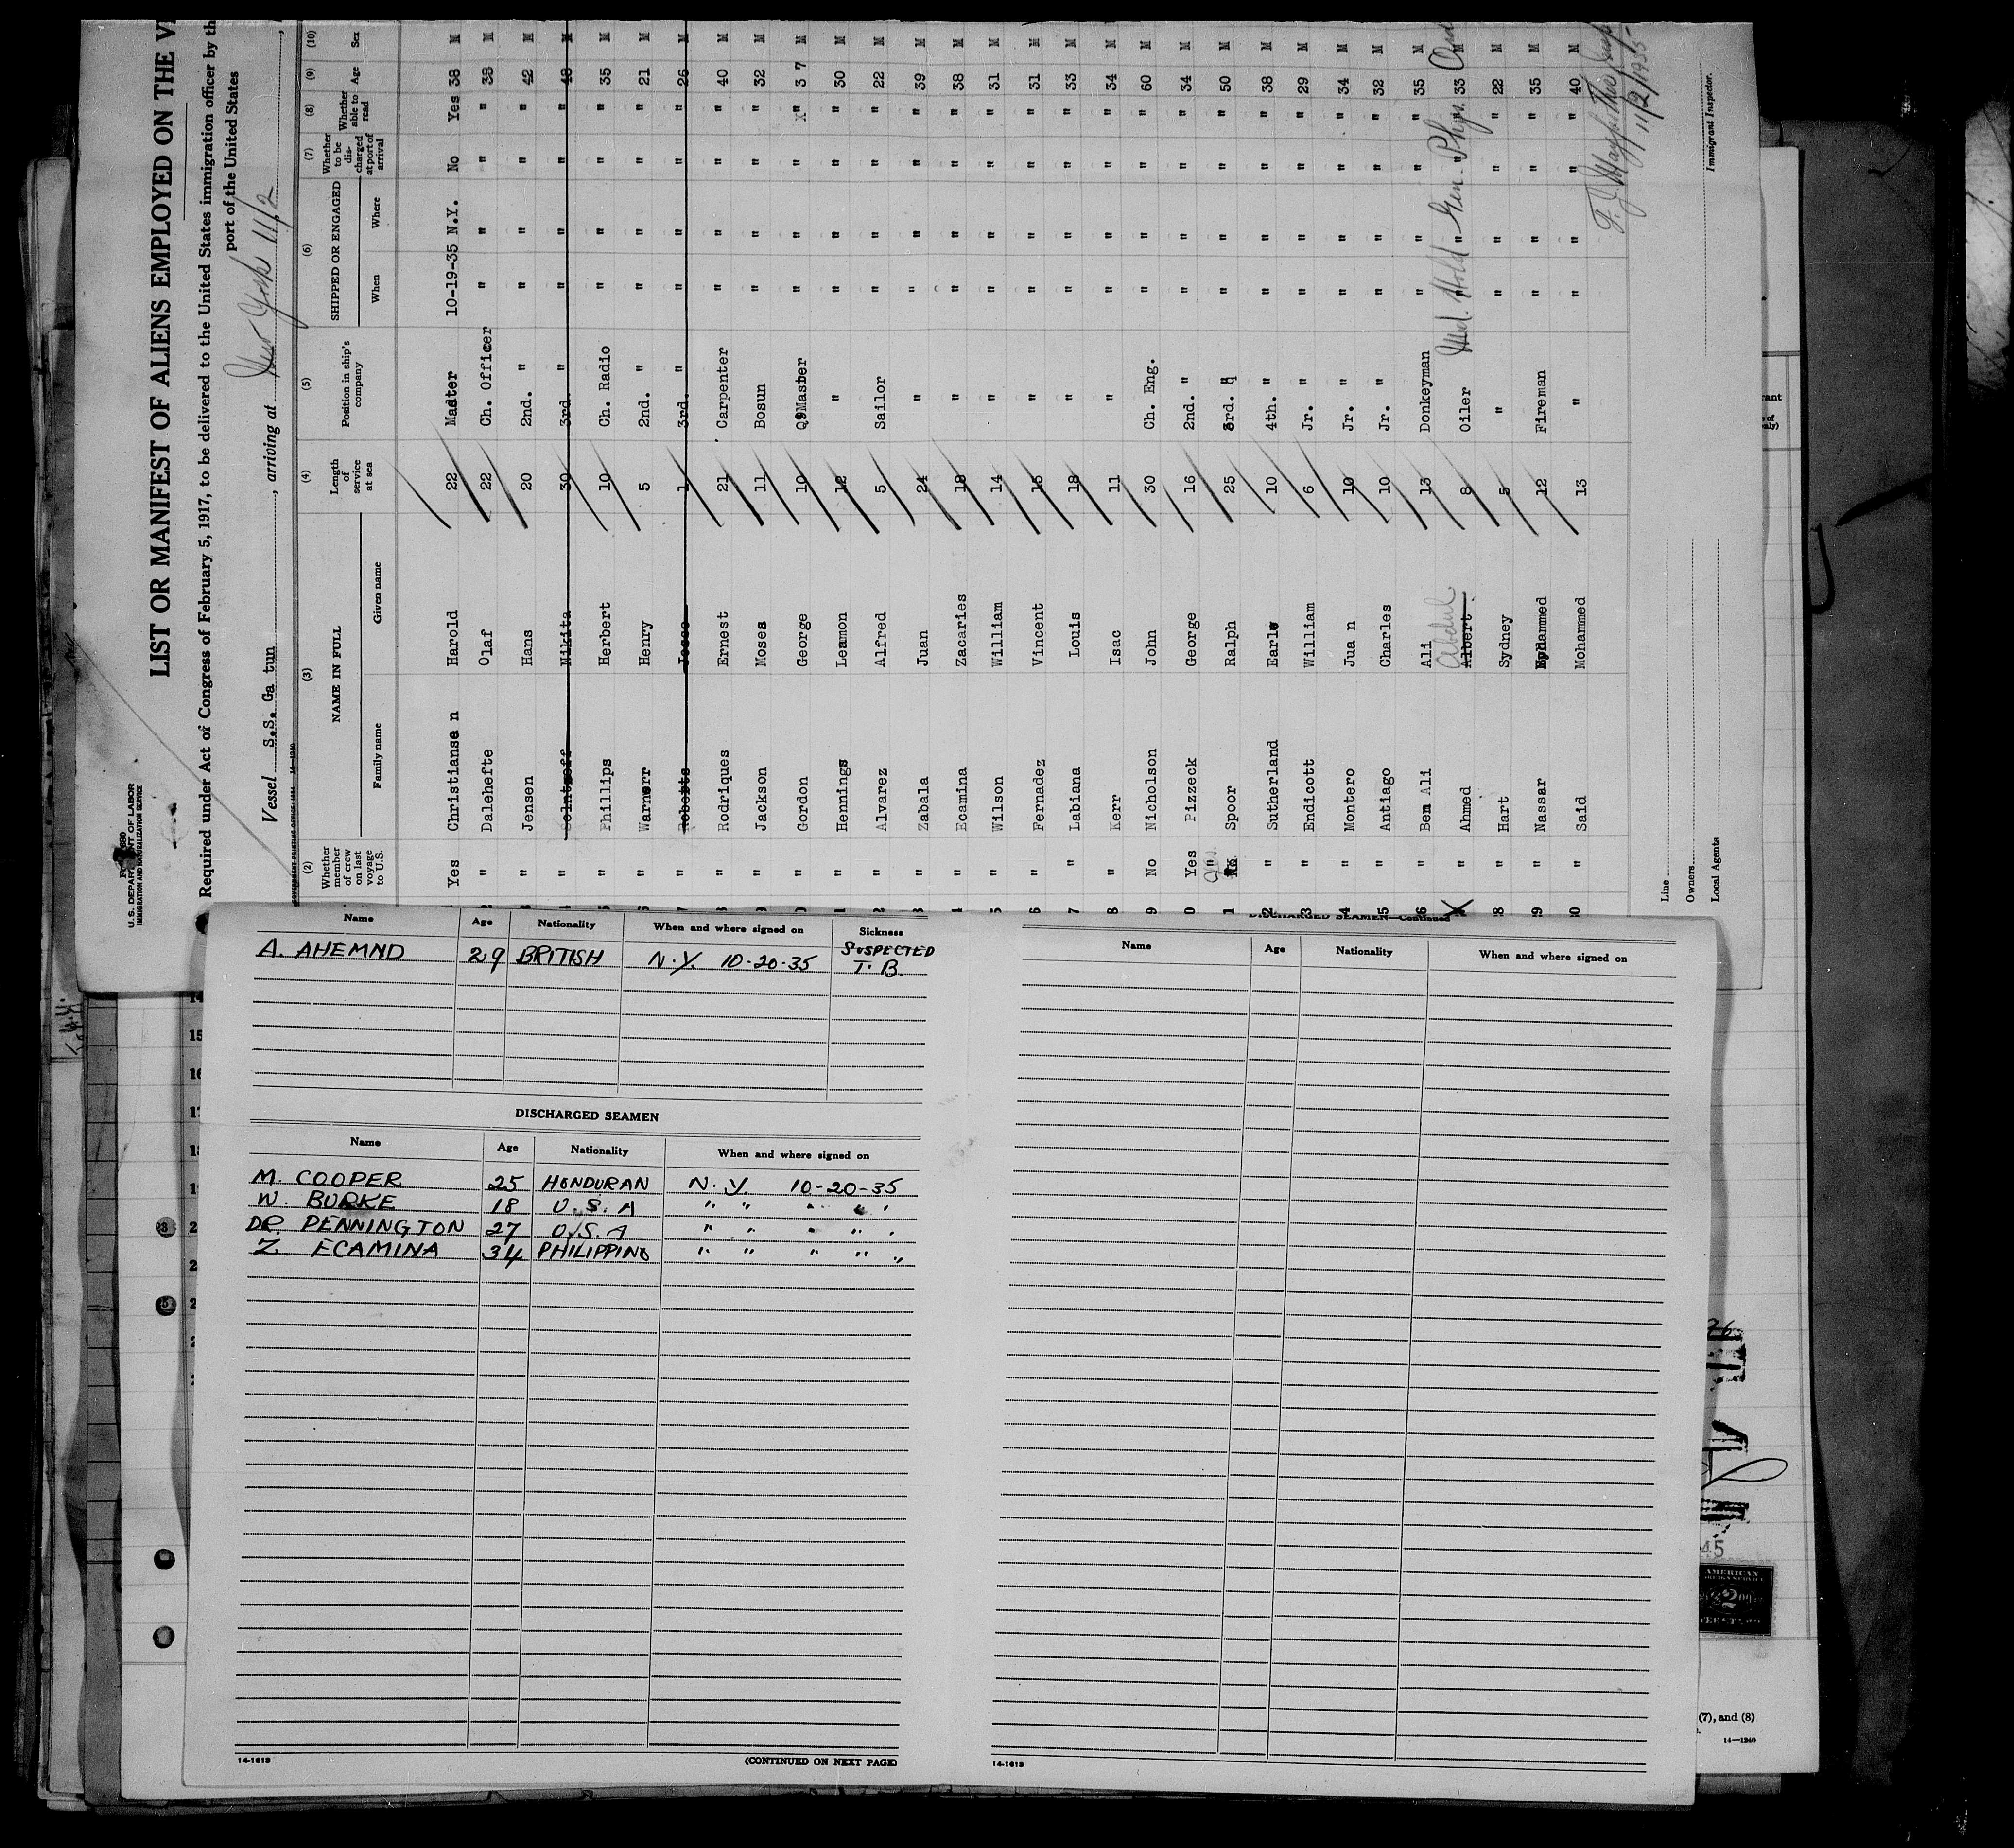 Form 680
U.S. DEPARTMENT OF LABOR
IMMIGRATION AND NATURALIZATION SERVICE
LIST OR MANIFEST OF ALIENS EMPLOYED ON THE
Required under Act of Congress of February 5, 1917, to be delivered to the United States immigration officer by th
port of the United States
Vessel S.S. Ga tun, arriving at New York 11/2
(2) (3) (4) (5) (6) (7) (8) (9) (10)
Whether member of crew on last voyage to U.S. NAME IN FULL Family name Given name Length of service at sea Position in ship's company SHIPPED OR ENGAGED When Where Whether to be discharged at port of arrival Whether able to read Age Sex
Yes Christianse n Harold 22 Master 10-19-35 N.Y. No Yes 38 M
" Dalehefte Olaf 22 Ch. Officer " " " " 38 M
" Jensen Hans 20 2nd. " " " " " 42 M
" Nikita 30 3rd. " " " " " 48 M
" Phillips Herbert 10 Ch. Radio " " " " 35 M
" Warnerr Henry 5 2nd. " " " " " 21 M
" Roberts Jesse 1 3rd. " " " " " 26 M
" Rodriques Ernest 21 Carpenter " " " " 40 M
" Jackson Moses 11 Bosun " " " " 32 M
" Gordon George 10 Q Master " " " " 3 7 M
" Hennings Leamon 12 " " " " " 30 M
" Alvarez Alfred 5 Sailor " " " " 22 M
" Zabala Juan 24 " " " " " 39 M
" Ecamina Zacaries 18 " " " " " 38 M
" Wilson William 14 " " " " " 31 M
" Fernadez Vincent 15 " " " " " 31 M
" Labiana Louis 18 " " " " " 33 M
" Kerr Isac 11 " " " " " 34 M
No Nicholson John 30 Ch. Eng. " " " " 60 M
Yes Pizzeck George 16 2nd. " " " " " 34 M
" Spoor Ralph 25 3rd. " " " " " 50 M
" Sutherland Earle 10 4th. " " " " " 38 M
" Endicott William 6 Jr. " " " " " 29 M
" Montero Jua n 10 Jr. " " " " " 34 M
" Antiago Charles 10 Jr. " " " " " 32 M
" Ben Ali Ali 13 Donkeyman " " " " 35 M
" Ahmed Albert Abdul 8 Oiler " " " " 33 M
Med. Hold Gen. Phys.
" Hart Sydney 5 " " " " " 22 M
" Nassar Mohammed 12 Fireman " " " " 35 M
" Said Mohammed 13 " " " " " 40 M
11/2/1935
Line
Owners
Local Agents
Immigrant Inspector.
Name Age Nationality When and where signed on Sickness
A. AHEMND 29 BRITISH N.Y. 10-20-35 SUSPECTED T.B.
DISCHARGED SEAMEN
Name Age Nationality When and where signed on
M. COOPER 25 HONDURAN N.Y. 10-20-35
W. BURKE 18 U.S.A " " " " "
DR PENNINGTON 27 U.S.A " " " " "
Z. ECAMINA 34 PHILIPPINO " " " " "
14-1613
(CONTINUED ON NEXT PAGE)
DISCHARGED SEAMEN—Continued
Name Age Nationality When and where signed on
14-1613
(7), and (8)
14—1240